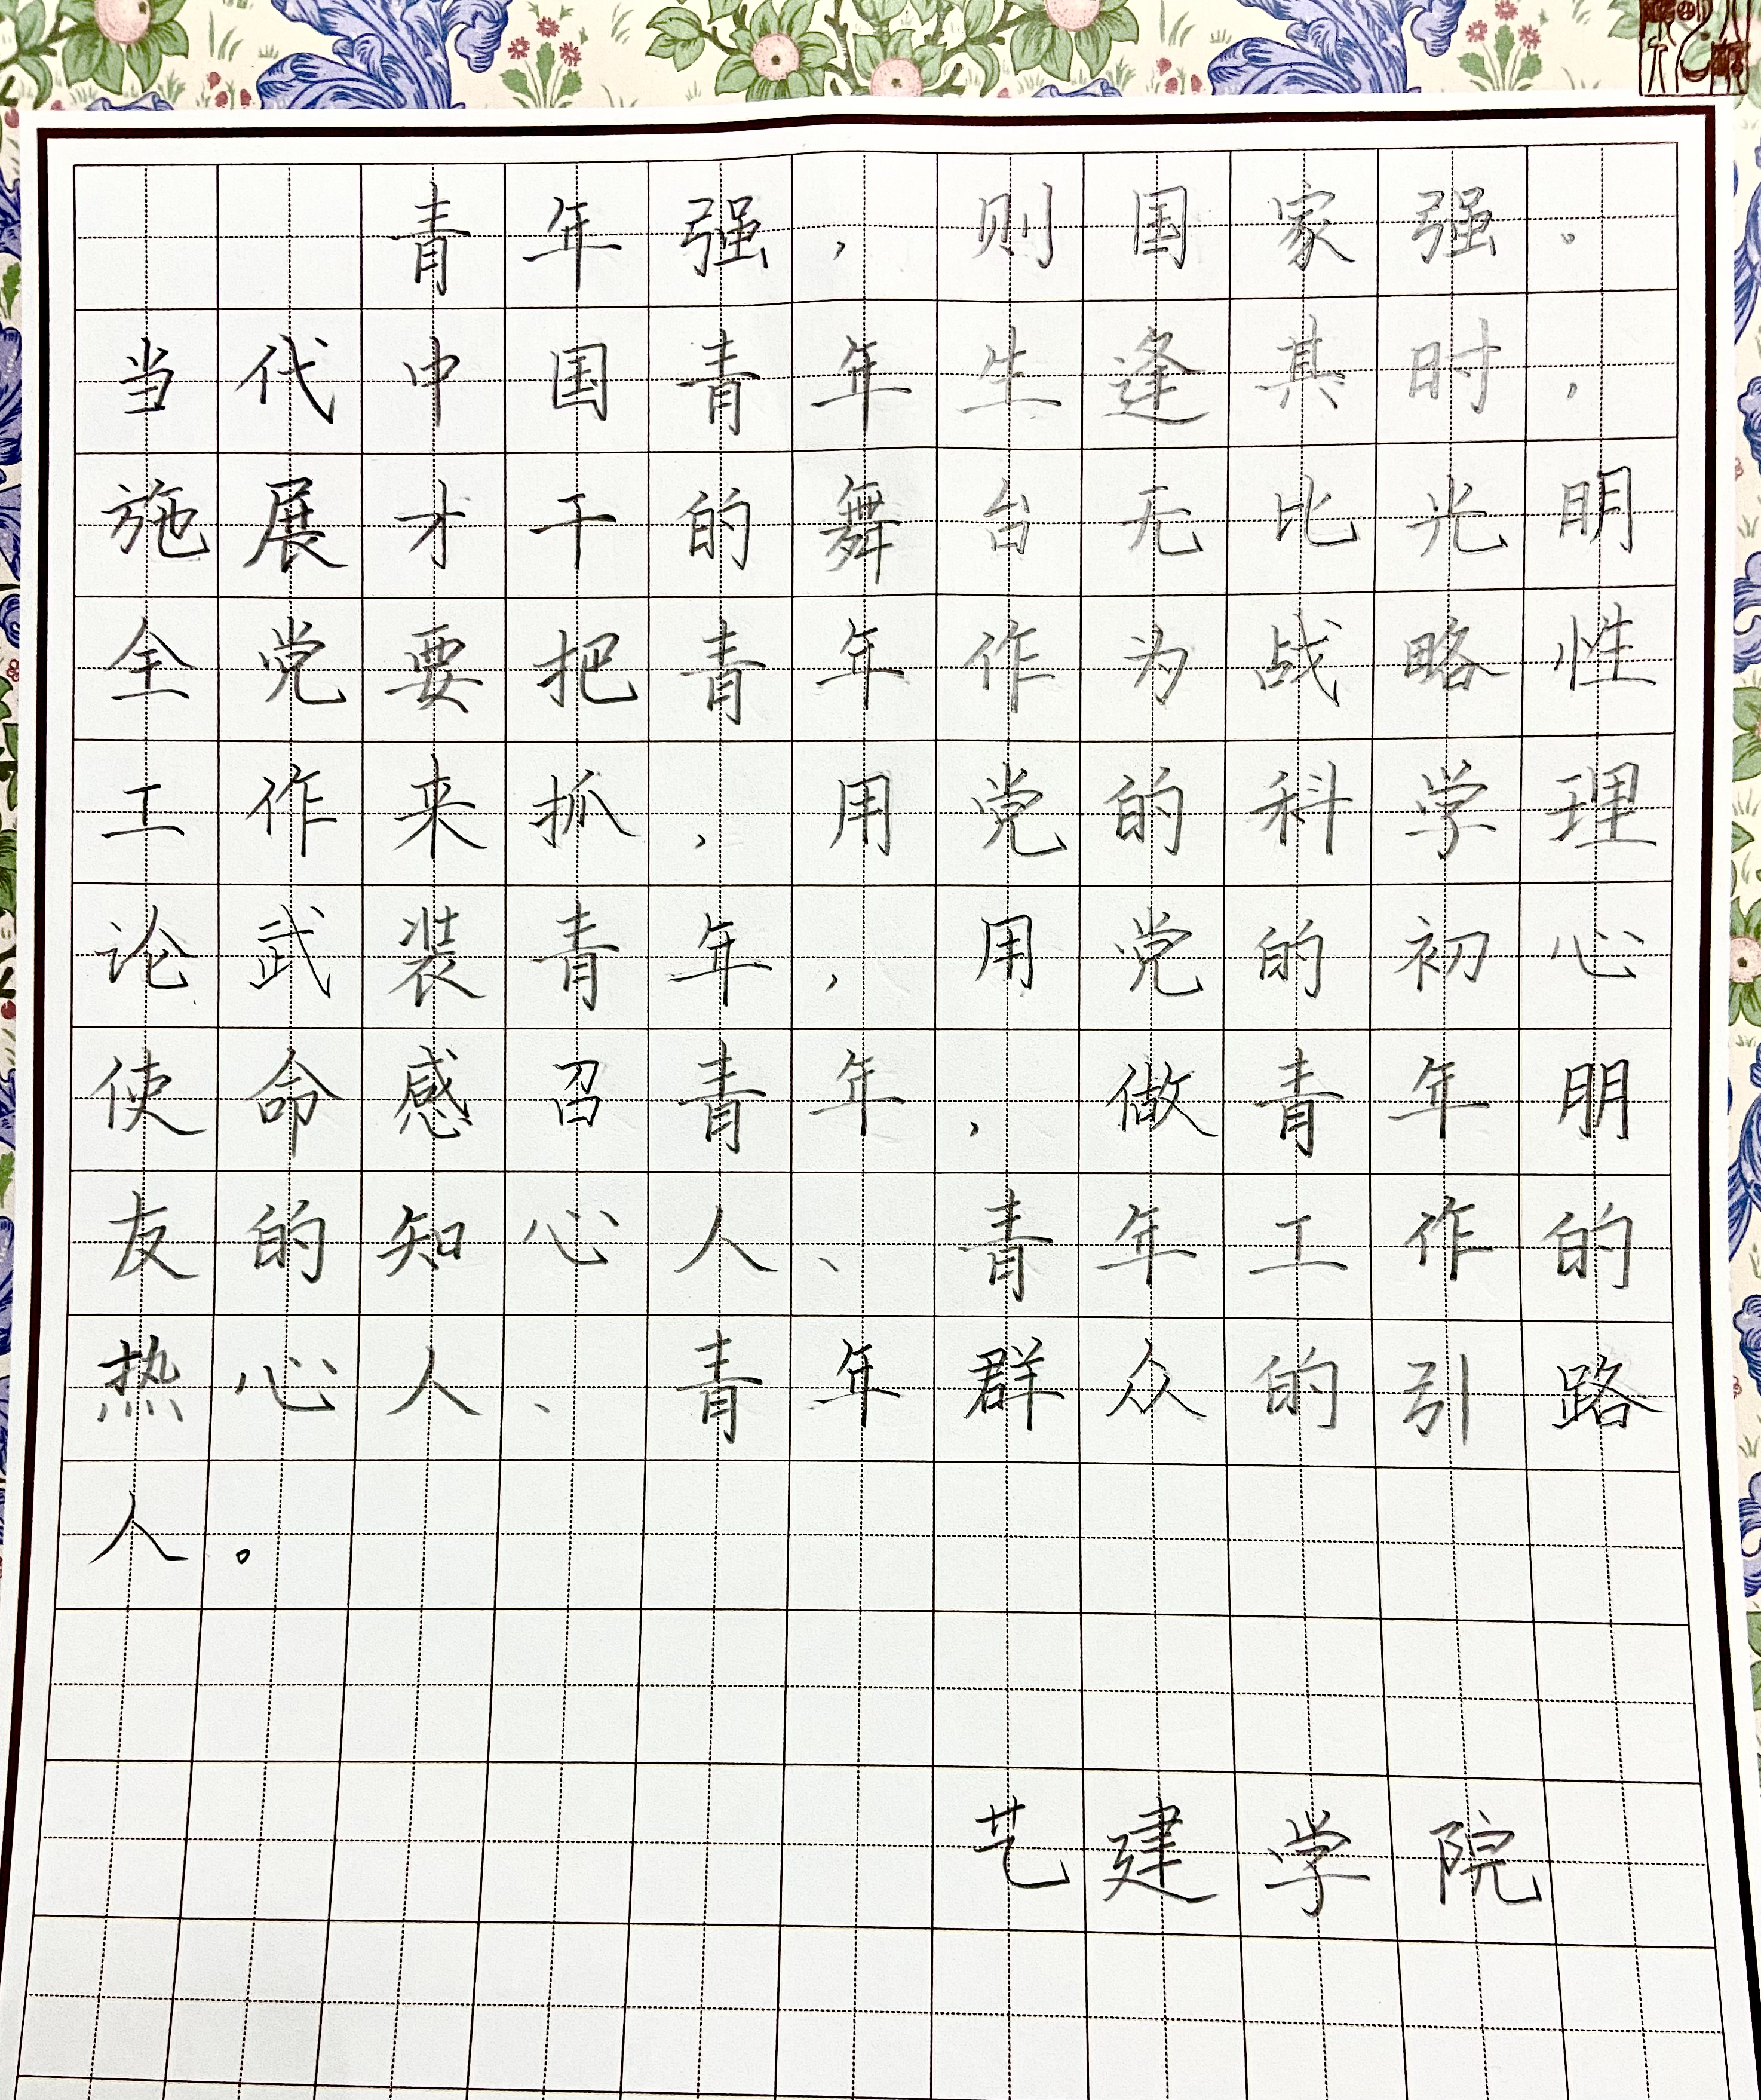 青年强，则国家强。
当代中国青年生逢其时，
施展才干的舞台无比光明
全党要把青年作为战略性
工作来抓，用党的科学理
论武装青年，用党的初心
使命感召青年，做青年朋
友的知心人、青年工作的
热心人、青年群众的引路
人。
艺建学院